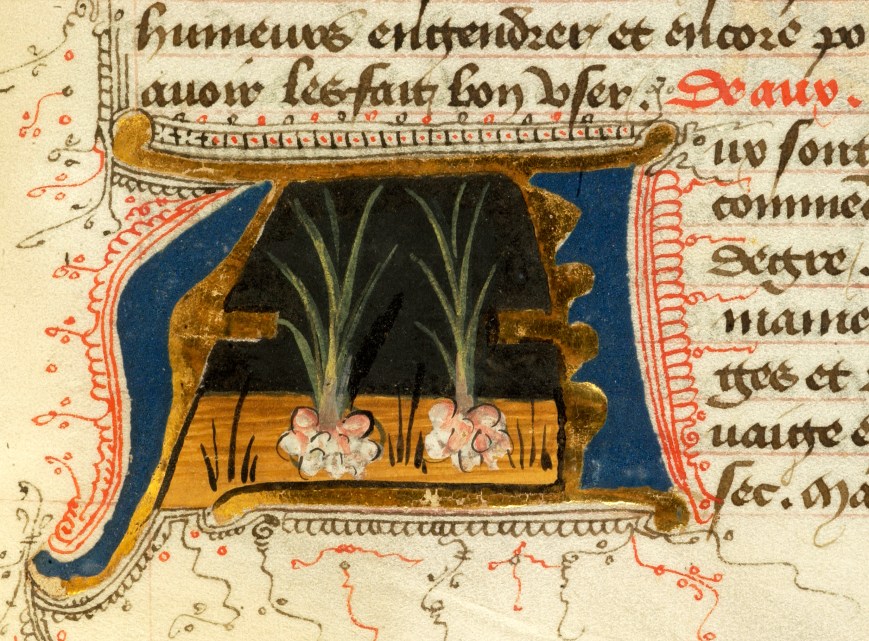 humeurs engendrer et encore po
auoir les fait bon vser. De aux.
ux sont
commē
degre.
maine
ges et
uaige e
sec. Ma